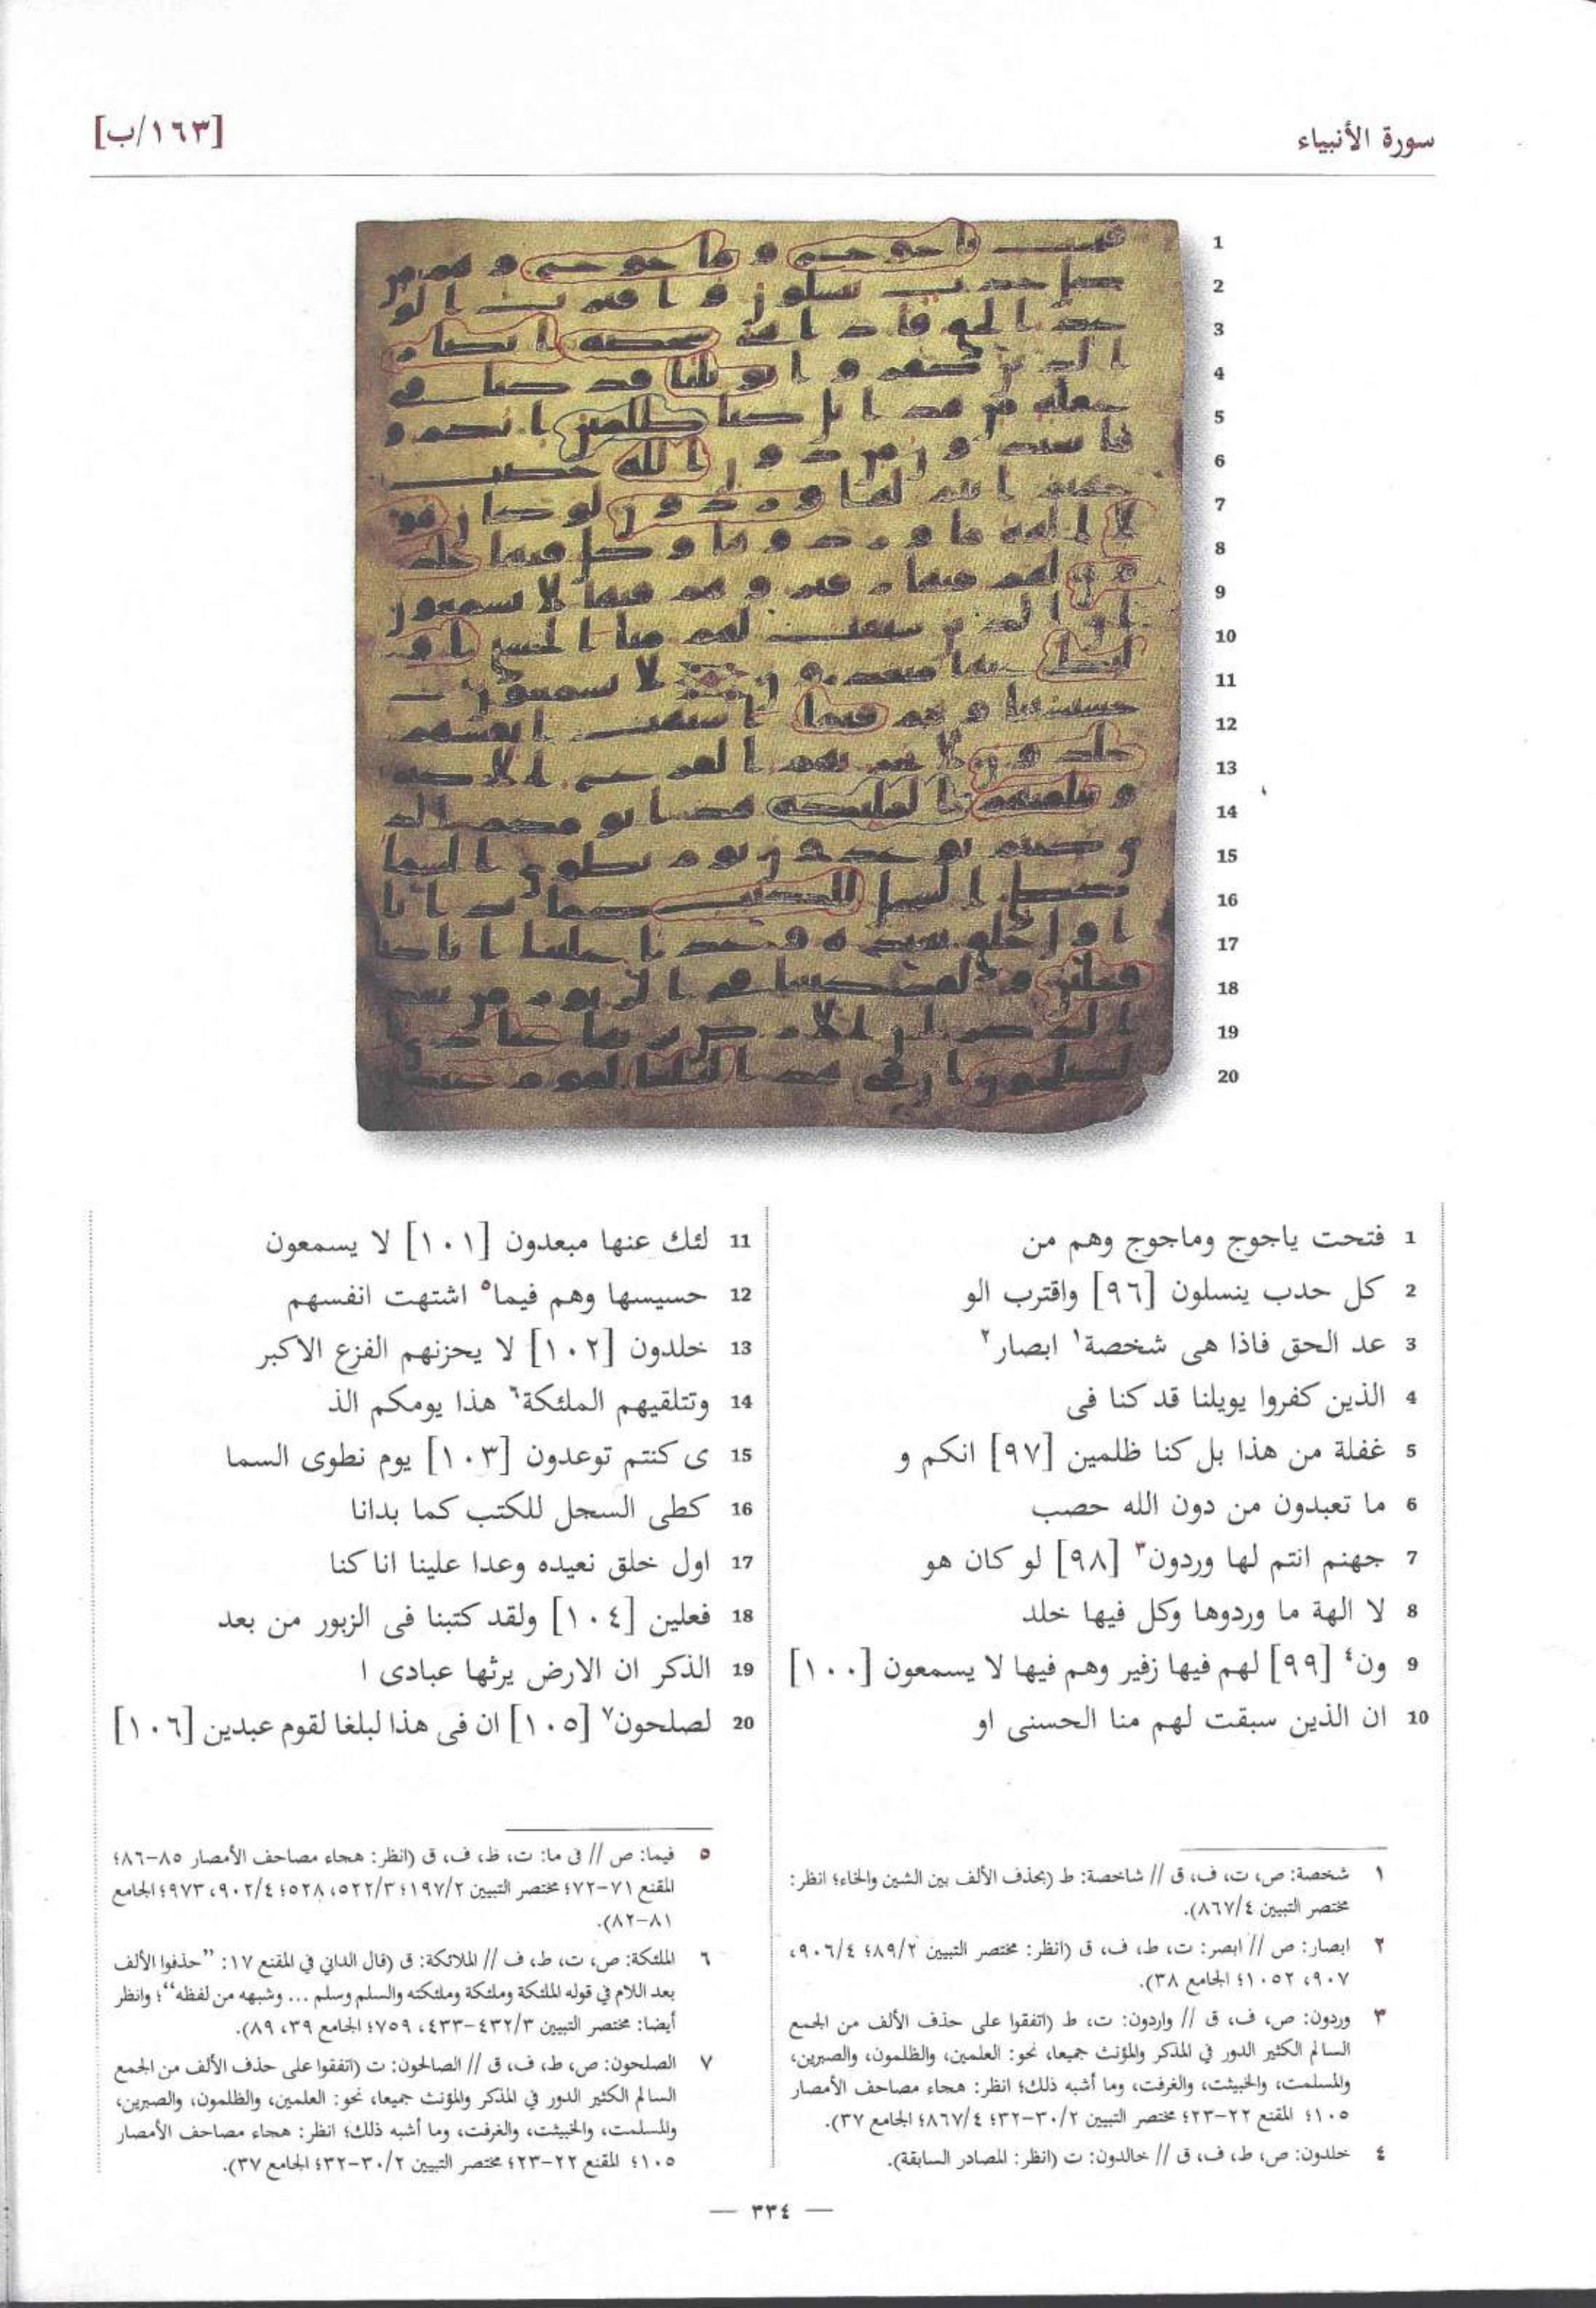 سورة الأنبياء
[١٦٣/ب]
1
2
3
4
5
6
7
8
9
10
11
12
13
14
15
16
17
18
19
20
1 فتحت ياجوج وماجوج وهم من
2 كل حدب ينسلون [٩٦] واقترب الو
3 عد الحق فاذا هى شخصة١ ابصار٢
4 الذين كفروا يويلنا قد كنا فى
5 غفلة من هذا بل كنا ظلمين [٩٧] انكم و
6 ما تعبدون من دون الله حصب
7 جهنم انتم لها وردون٣ [٩٨] لو كان هو
8 لا الهة ما وردوها وكل فيها خلد
9 ون٤ [٩٩] لهم فيها زفير وهم فيها لا يسمعون [١٠٠]
10 ان الذين سبقت لهم منا الحسنى او
11 لئك عنها مبعدون [١٠١] لا يسمعون
12 حسيسها وهم فيما٥ اشتهت انفسهم
13 خلدون [١٠٢] لا يحزنهم الفزع الاكبر
14 وتتلقيهم الملئكة٦ هذا يومكم الذ
15 ى كنتم توعدون [١٠٣] يوم نطوى السما
16 كطى السجل للكتب كما بدانا
17 اول خلق نعيده وعدا علينا انا كنا
18 فعلين [١٠٤] ولقد كتبنا فى الزبور من بعد
19 الذكر ان الارض يرثها عبادى ا
20 لصلحون٧ [١٠٥] ان فى هذا لبلغا لقوم عبدين [١٠٦]
١ شخصة: ص، ت، ف، ق // شاخصة: ط (بحذف الألف بين الشين والخاء؛ انظر:
مختصر التبيين ٨٦٧/٤).
٢ ابصار: ص // ابصر: ت، ط، ف، ق (انظر: مختصر التبيين ٨٩/٢؛ ٩٠٦/٤،
٩٠٧، ١٠٥٢؛ الجامع ٣٨).
٣ وردون: ص، ف، ق // واردون: ت، ط (اتفقوا على حذف الألف من الجمع
السالم الكثير الدور في المذكر والمؤنث جميعا، نحو: العلمين، والظلمون، والصبرين،
والمسلمت، والخبيثت، والغرفت، وما أشبه ذلك؛ انظر: هجاء مصاحف الأمصار
١٠٥؛ المقنع ٢٢-٢٣؛ مختصر التبيين ٣٠/٢-٣٢؛ ٨٦٧/٤؛ الجامع ٣٧).
٤ خلدون: ص، ط، ف، ق // خالدون: ت (انظر: المصادر السابقة).
٥ فيما: ص // فى ما: ت، ط، ف، ق (انظر: هجاء مصاحف الأمصار ٨٥-٨٦؛
المقنع ٧١-٧٢؛ مختصر التبيين ١٩٧/٢؛ ٥٢٢/٣، ٥٢٨؛ ٩٠٢/٤، ٩٧٣؛ الجامع
٨١-٨٢).
٦ الملئكة: ص، ت، ط، ف // الملائكة: ق (قال الداني في المقنع ١٧: ”حذفوا الألف
بعد اللام في قوله الملئكة وملئكة وملئكته والسلم وسلم ... وشبهه من لفظه“؛ وانظر
أيضا: مختصر التبيين ٤٣٢/٣-٤٣٣، ٧٥٩؛ الجامع ٣٩، ٨٩).
٧ الصلحون: ص، ط، ف، ق // الصالحون: ت (اتفقوا على حذف الألف من الجمع
السالم الكثير الدور في المذكر والمؤنث جميعا، نحو: العلمين، والظلمون، والصبرين،
والمسلمت، والخبيثت، والغرفت، وما أشبه ذلك؛ انظر: هجاء مصاحف الأمصار
١٠٥؛ المقنع ٢٢-٢٣؛ مختصر التبيين ٣٠/٢-٣٢؛ الجامع ٣٧).
— ٣٣٤ —